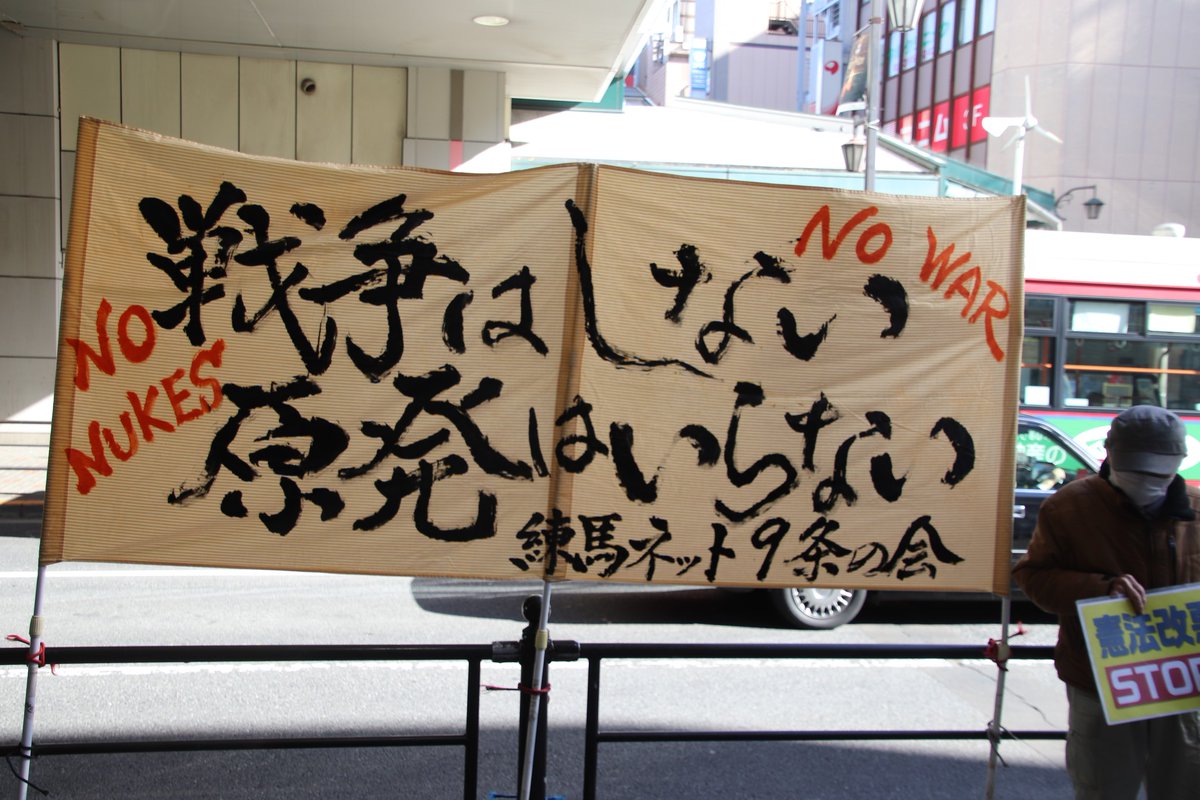 戦争はしない
NO WAR
NO
NUKES
原発はいらない
練馬ネット9条の会
憲法改
STOP